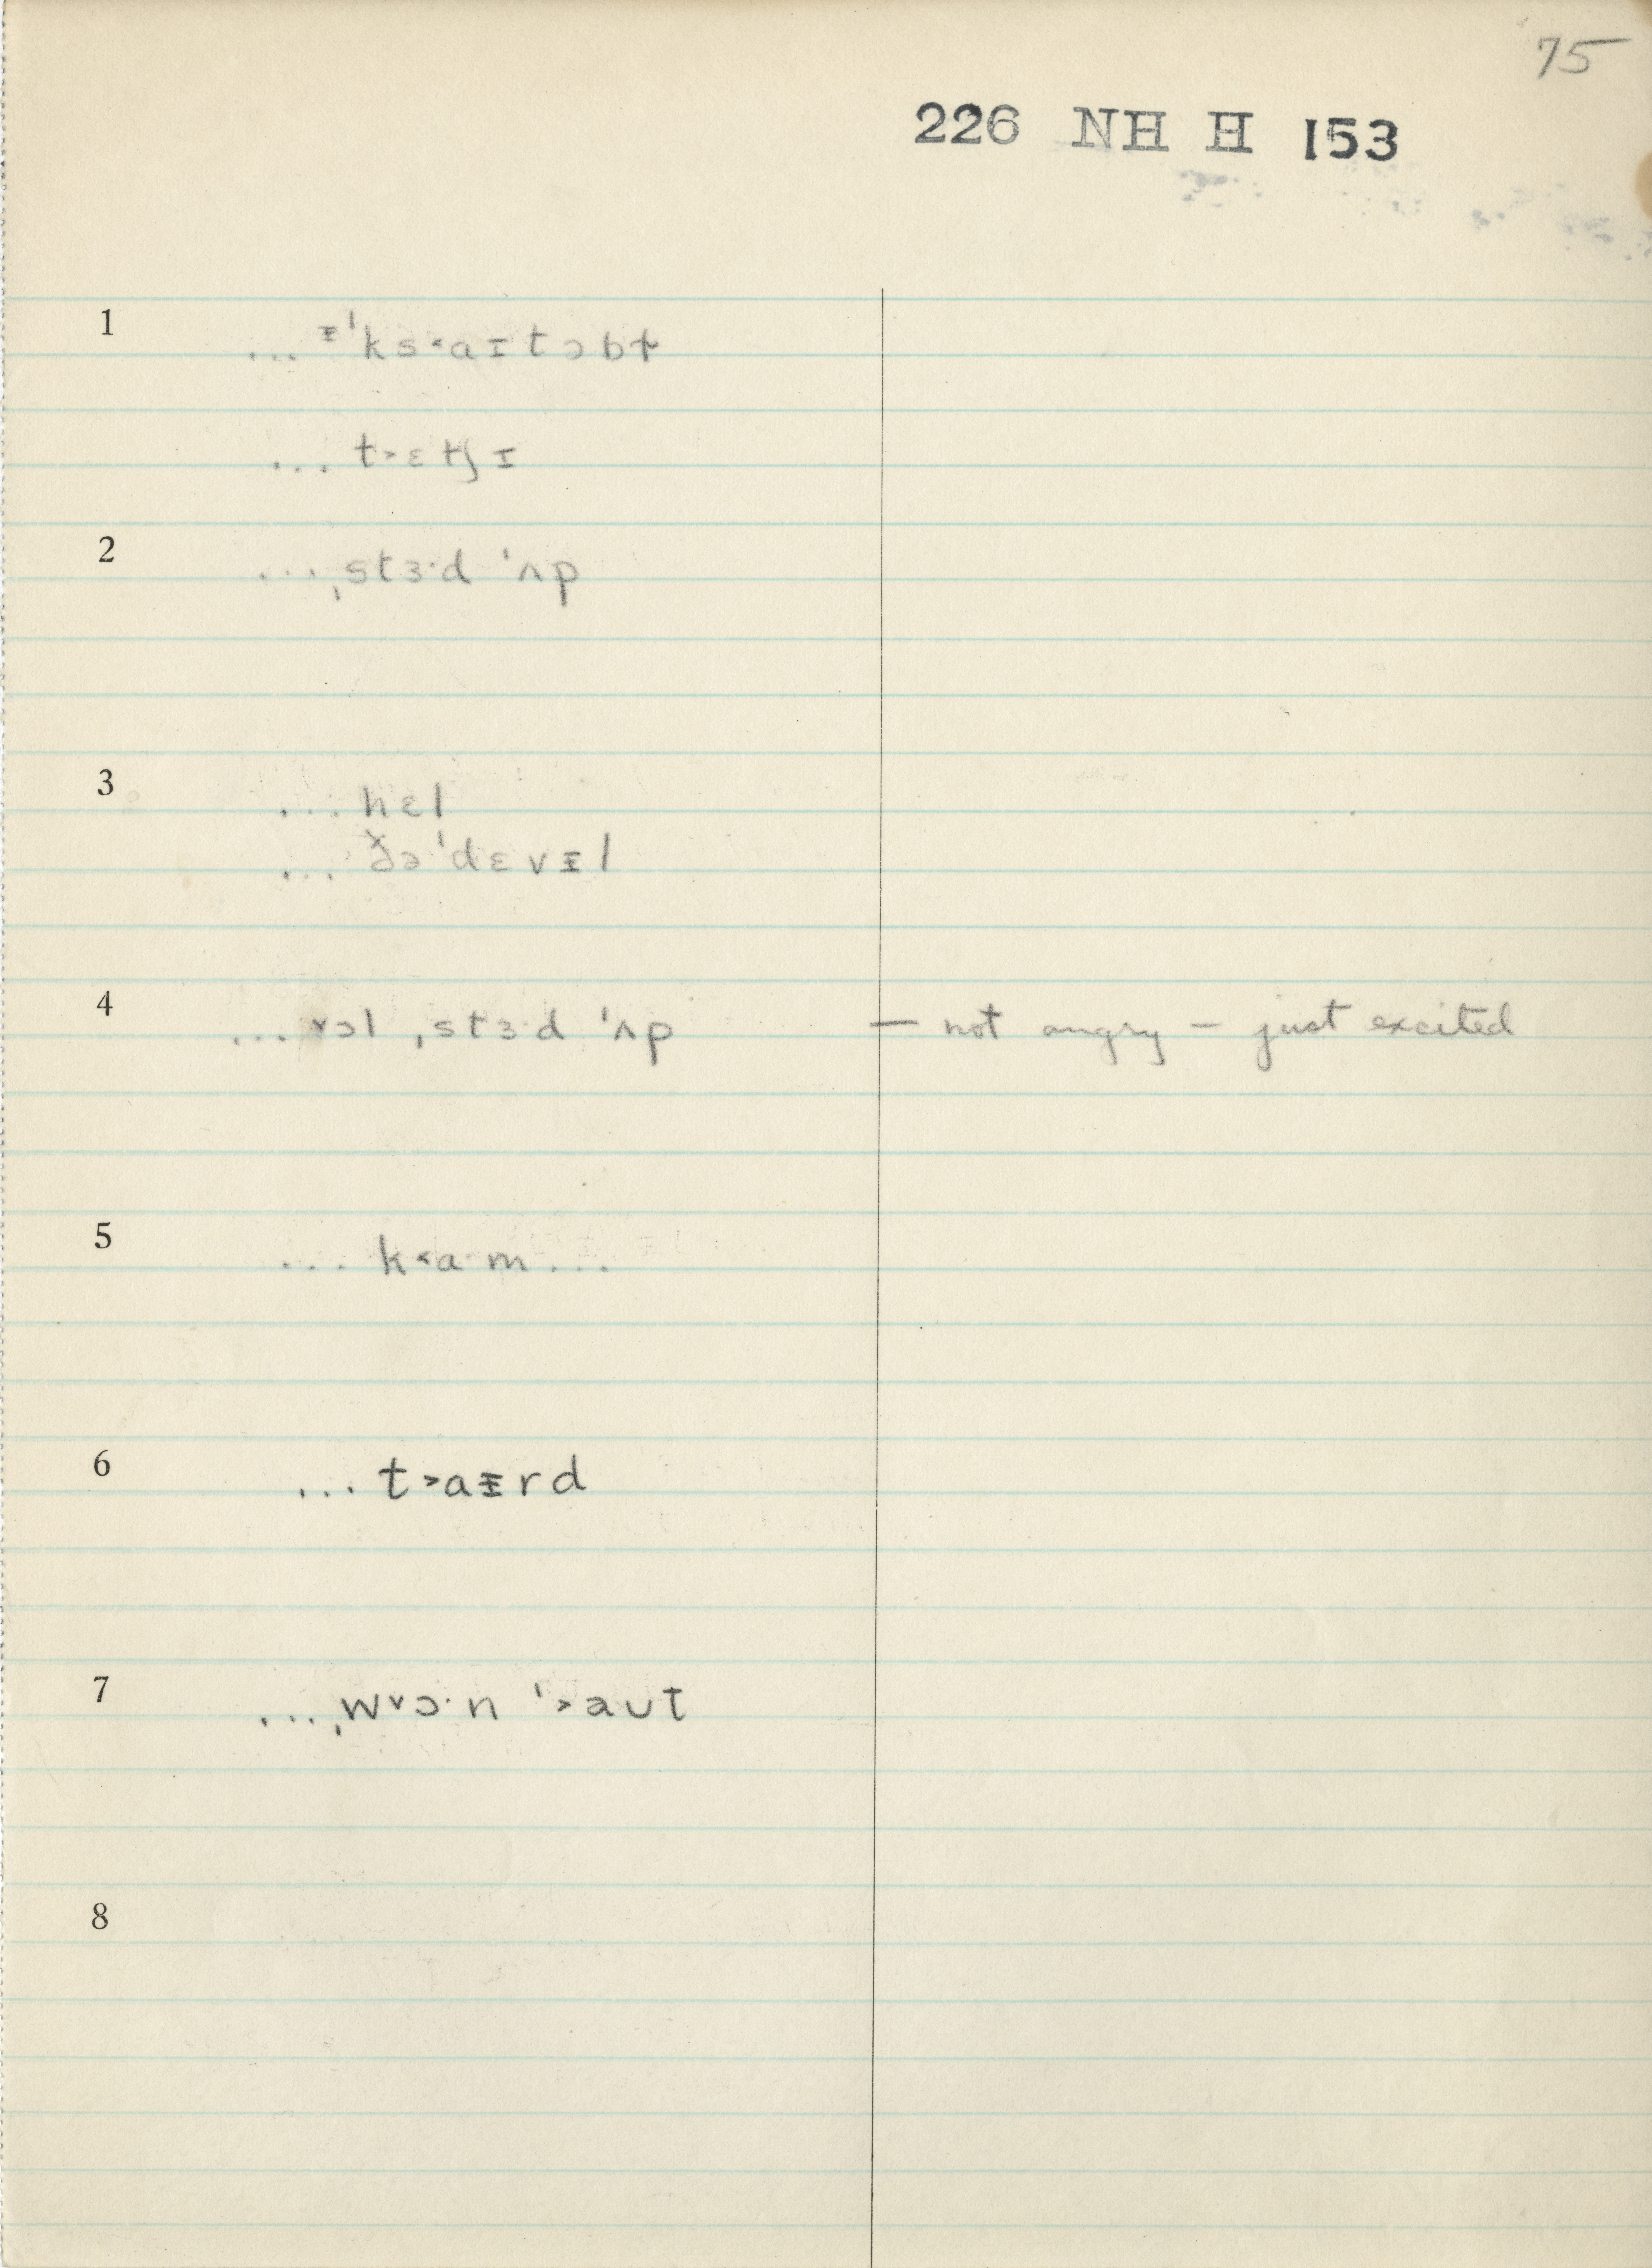 75
226 NH H 153
1 ... ᵻˈks˂aɪtəbɫ
... t˃ɛtʃɪ
2 ... ˌstɜ·d ˈʌp
3 ... hɛl
... ð̌ə ˈdɛvᵻl
4 ... ˅ɔl ˌstɜ·d ˈʌp — not angry — just excited
5 ... k˂a·m ...
6 ... t˃aᵻrd
7 ... ˌw˅ɔ·n ˈ˃aʊt
8